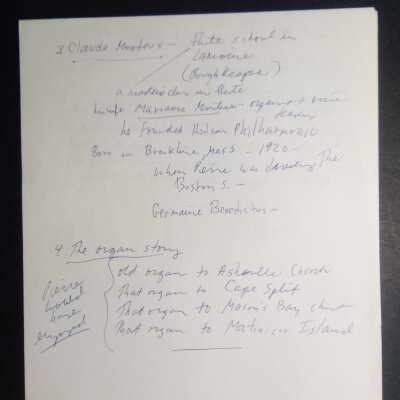 3 Claude Monteux — flute school in
Lamoine
(Poughkeepsie)
a master class in flute
his wife Marianne Monteux — organist + voice
he founded Hudson Philharmonic
Born in Brookline, Mass — 1920 —
when Pierre was directing The
Boston S. —
Germaine Benedictus —
4 The organ story
Pierre would have enjoyed
old organ to Ashville Church
That organ to Cape Split
That organ to Mason's Bay church
That organ to Matinicus Island